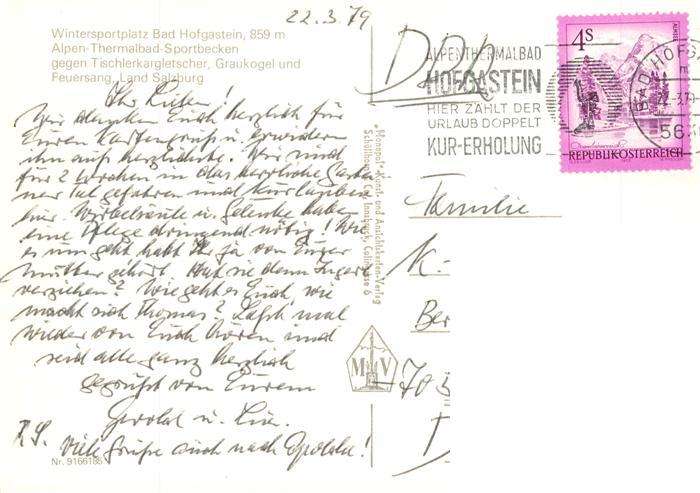 22.3.79
Wintersportplatz Bad Hofgastein, 859 m
Alpen-Thermalbad-Sportbecken
gegen Tischlerkargletscher, Graukogel und
Feuersang, Land Salzburg
Ihr Lieben!
Wir danken Euch herzlich für
Euren Kartengruß u. erwidern
ihn aufs herzlichste. Wir sind
für 2 Wochen in das herrliche Gastei-
ner Tal gefahren und kurlauben
hier. Wirbelsäule u. Gelenke haben
eine Pflege dringend nötig! Wie
es uns geht habt Ihr ja von Eurer
Mutter gehört. Hat sie denn
verziehen? Wie geht es Euch, wie
macht sich Thomas? Laßt mal
wieder von Euch hören und
seid alle ganz herzlich
gegrüßt von Eurem
u.
P.S. Viele Grüße auch nach
Nr. 9166186
Monopol-Kunst- und Ansichtskarten-Verlag
Schöllhorn & Co., Innsbruck,
M V
ALPENTHERMALBAD
HOFGASTEIN
HIER ZÄHLT DER
URLAUB DOPPELT
KUR-ERHOLUNG
4S
ALMSEE
REPUBLIK ÖSTERREICH
BAD HOFGA
-3.79
56
Familie
K.-
Ber
703
D